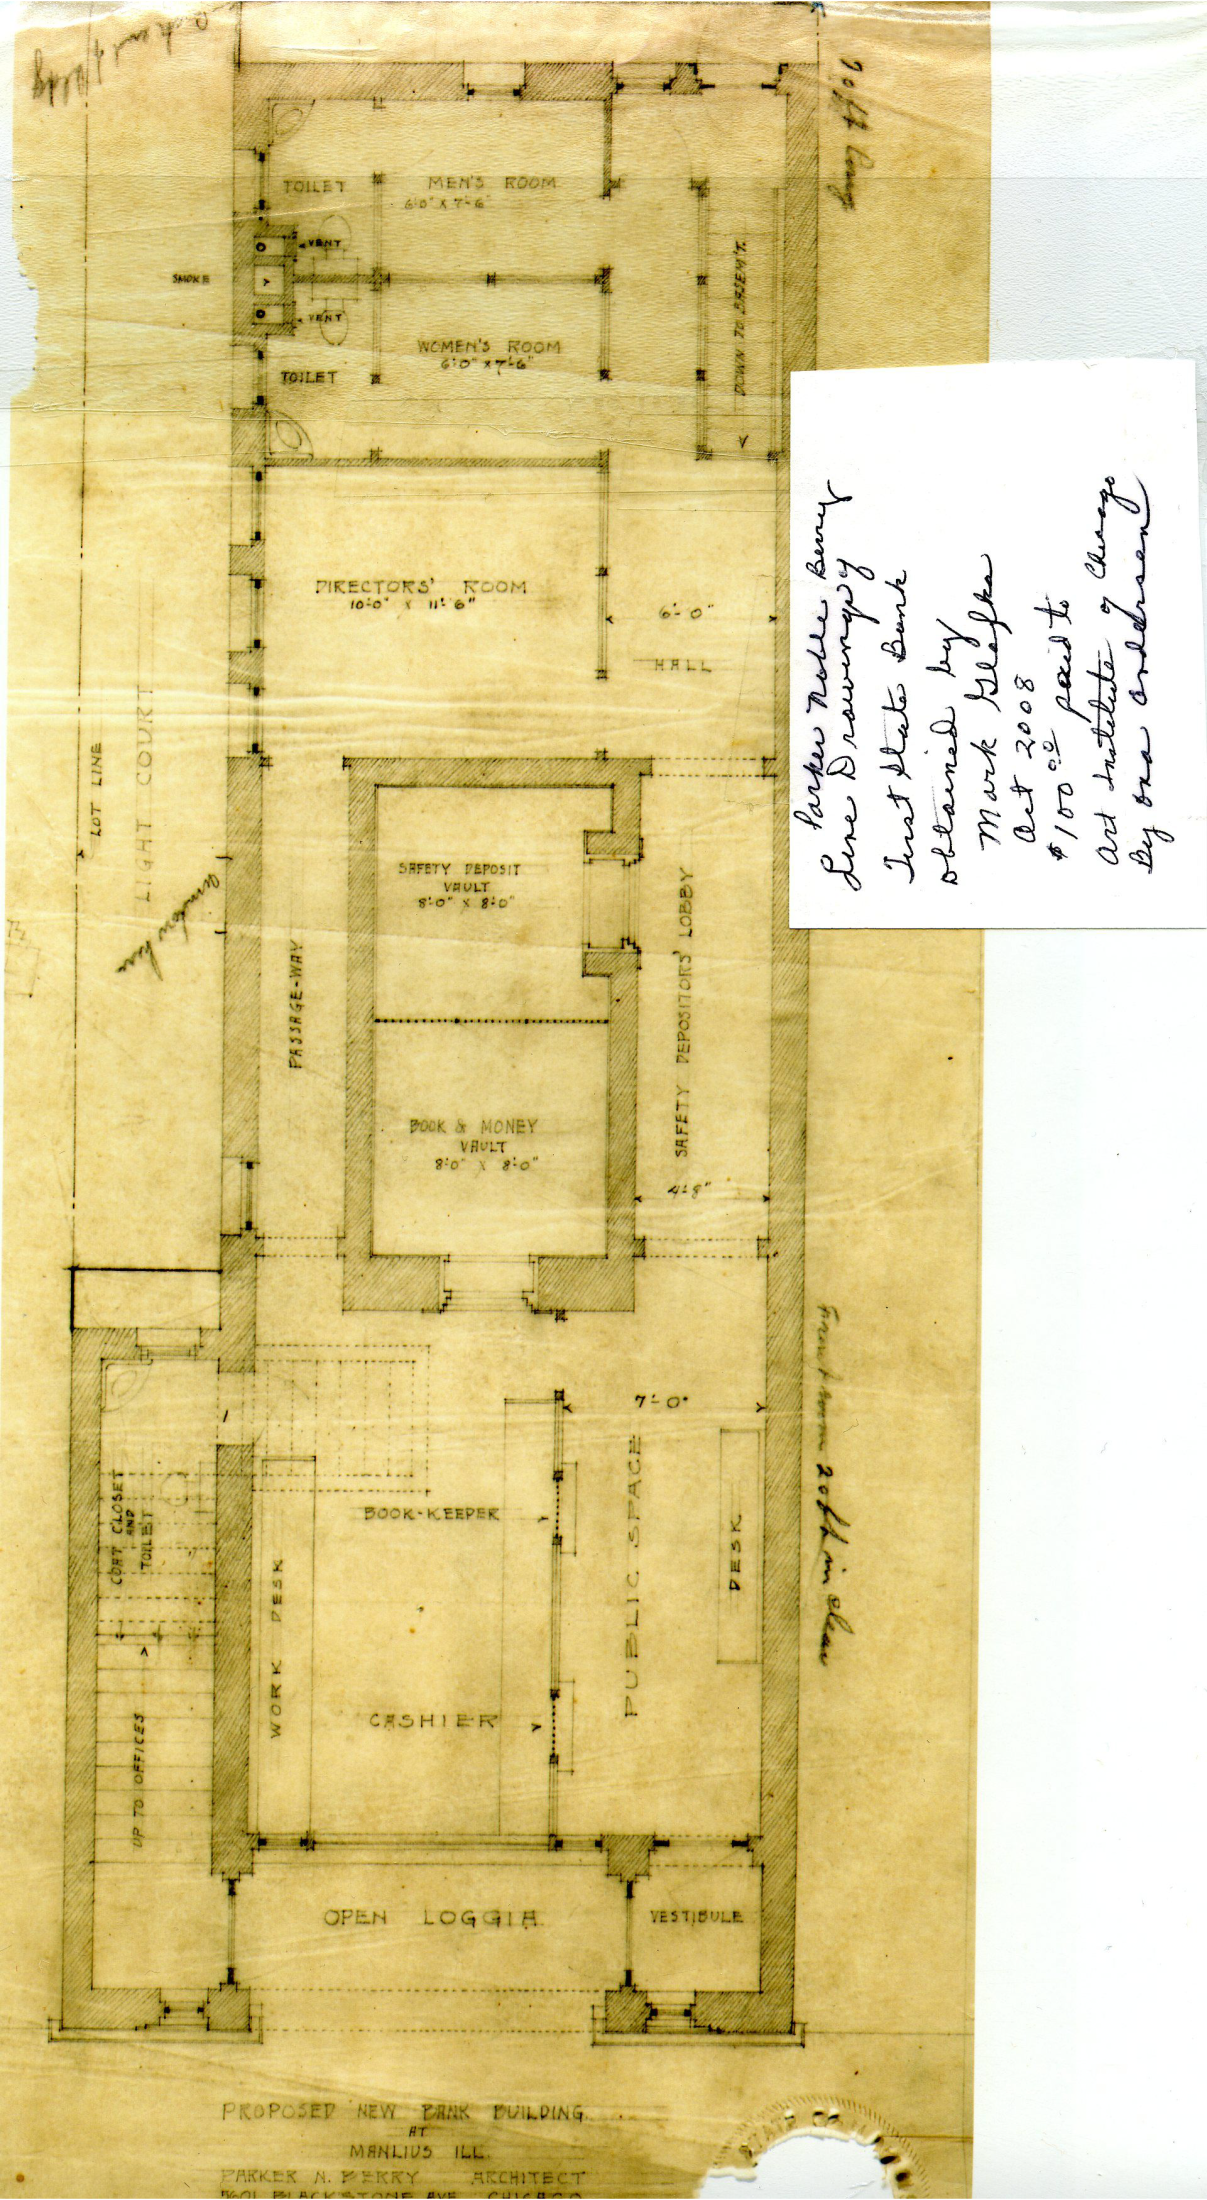 90 ft long
TOILET
MEN'S ROOM
6'-0" X 7'-6"
VENT
SMOKE
VENT
DOWN TO BASEM'T.
WOMEN'S ROOM
6'-0" X 7'-6"
TOILET
DIRECTORS' ROOM
10'-0" X 11'-6"
6'-0"
HALL
LOT LINE
LIGHT COURT
SAFETY DEPOSIT
VAULT
8'-0" X 8'-0"
PASSAGE-WAY
SAFETY DEPOSITORS' LOBBY
BOOK & MONEY
VAULT
8'-0" X 8'-0"
4'-8"
Parker Noble Berry
Line Drawings of
First State Bank
obtained by
Mark
Oct 2008
$100.00 paid to
Art Institute of Chicago
By
7'-0"
Front room 20 ft in clear
COAT CLOSET
AND
TOILET
BOOK-KEEPER
PUBLIC SPACE
DESK
WORK DESK
CASHIER
UP TO OFFICES
OPEN LOGGIA
VESTIBULE
PROPOSED NEW BANK BUILDING
AT
MANLIUS ILL.
PARKER N. BERRY ARCHITECT
5601 BLACKSTONE AVE. CHICAGO